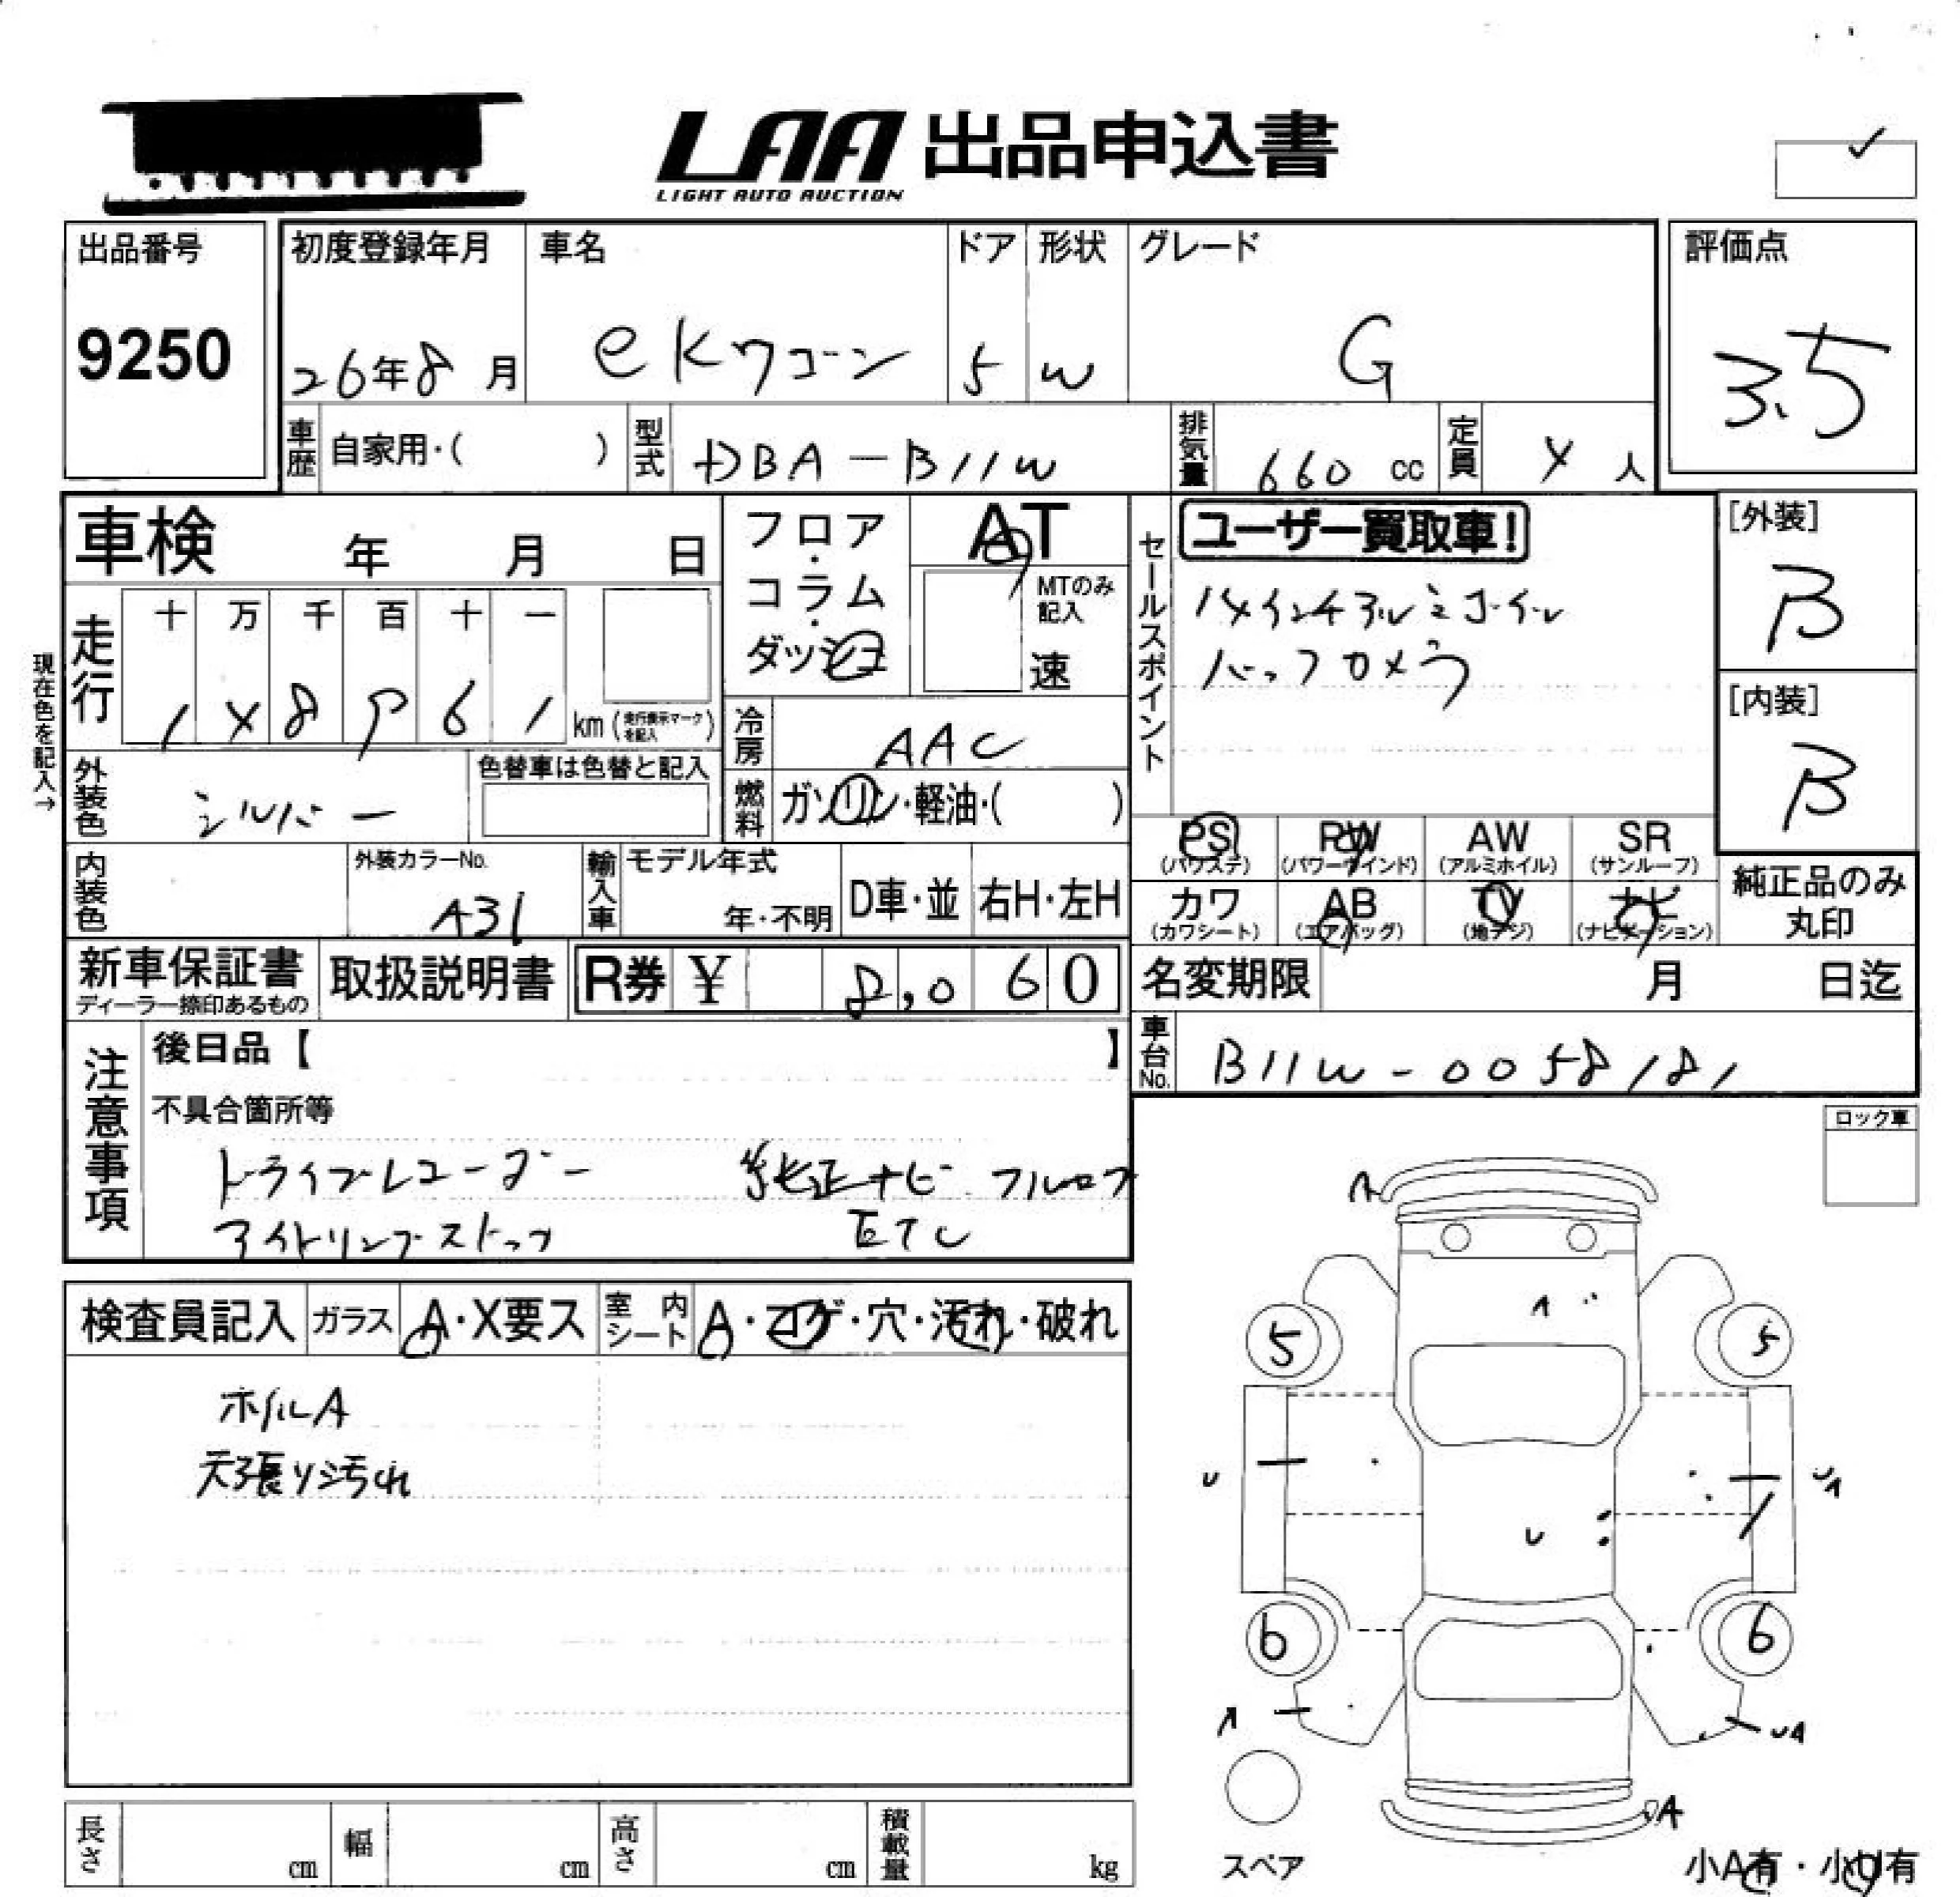 LAA 出品申込書
LIGHT AUTO AUCTION
✓
出品番号
9250
初度登録年月
26年8月
車名
eKワゴン
ドア
5
形状
W
グレード
G
評価点
3.5
車歴
自家用・( )
型式
DBA-B11W
排気量
660 cc
定員
4人
車検 年 月 日
フロア・コラム・ダッシュ
AT
MTのみ記入
速
セールスポイント
ユーザー買取車!
14インチアルミホイル
バックカメラ
[外装]
B
[内装]
B
現在色を記入→
走行
十 万 千 百 十 一
1 4 8 9 6 1 km (走行表示マークを記入)
冷房
AAC
外装色
シルバー
色替車は色替と記入
燃料
ガソリン・軽油・( )
PS (パワステ)
PW (パワーウインド)
AW (アルミホイル)
SR (サンルーフ)
カワ (カワシート)
AB (エアバッグ)
TV (地デジ)
ナビ (ナビゲーション)
純正品のみ丸印
内装色
外装カラーNo.
A31
輸入車
モデル年式
年・不明
D車・並
右H・左H
新車保証書
ディーラー捺印あるもの
取扱説明書
R券 ¥ 8,060
名変期限 月 日迄
車台No.
B11W-0058181
注意事項
後日品【 】
不具合箇所等
ドライブレコーダー 純正ナビ フルセグ
アイドリングストップ ETC
ロック車
検査員記入
ガラス
A・X要ス
室内シート
A・コゲ・穴・汚れ・破れ
ホイルA
天張り汚れ
A
A
5
5
U
UA
U
6
6
A
UA
A
スペア
小A有・小U有
長さ cm
幅 cm
高さ cm
積載量 kg